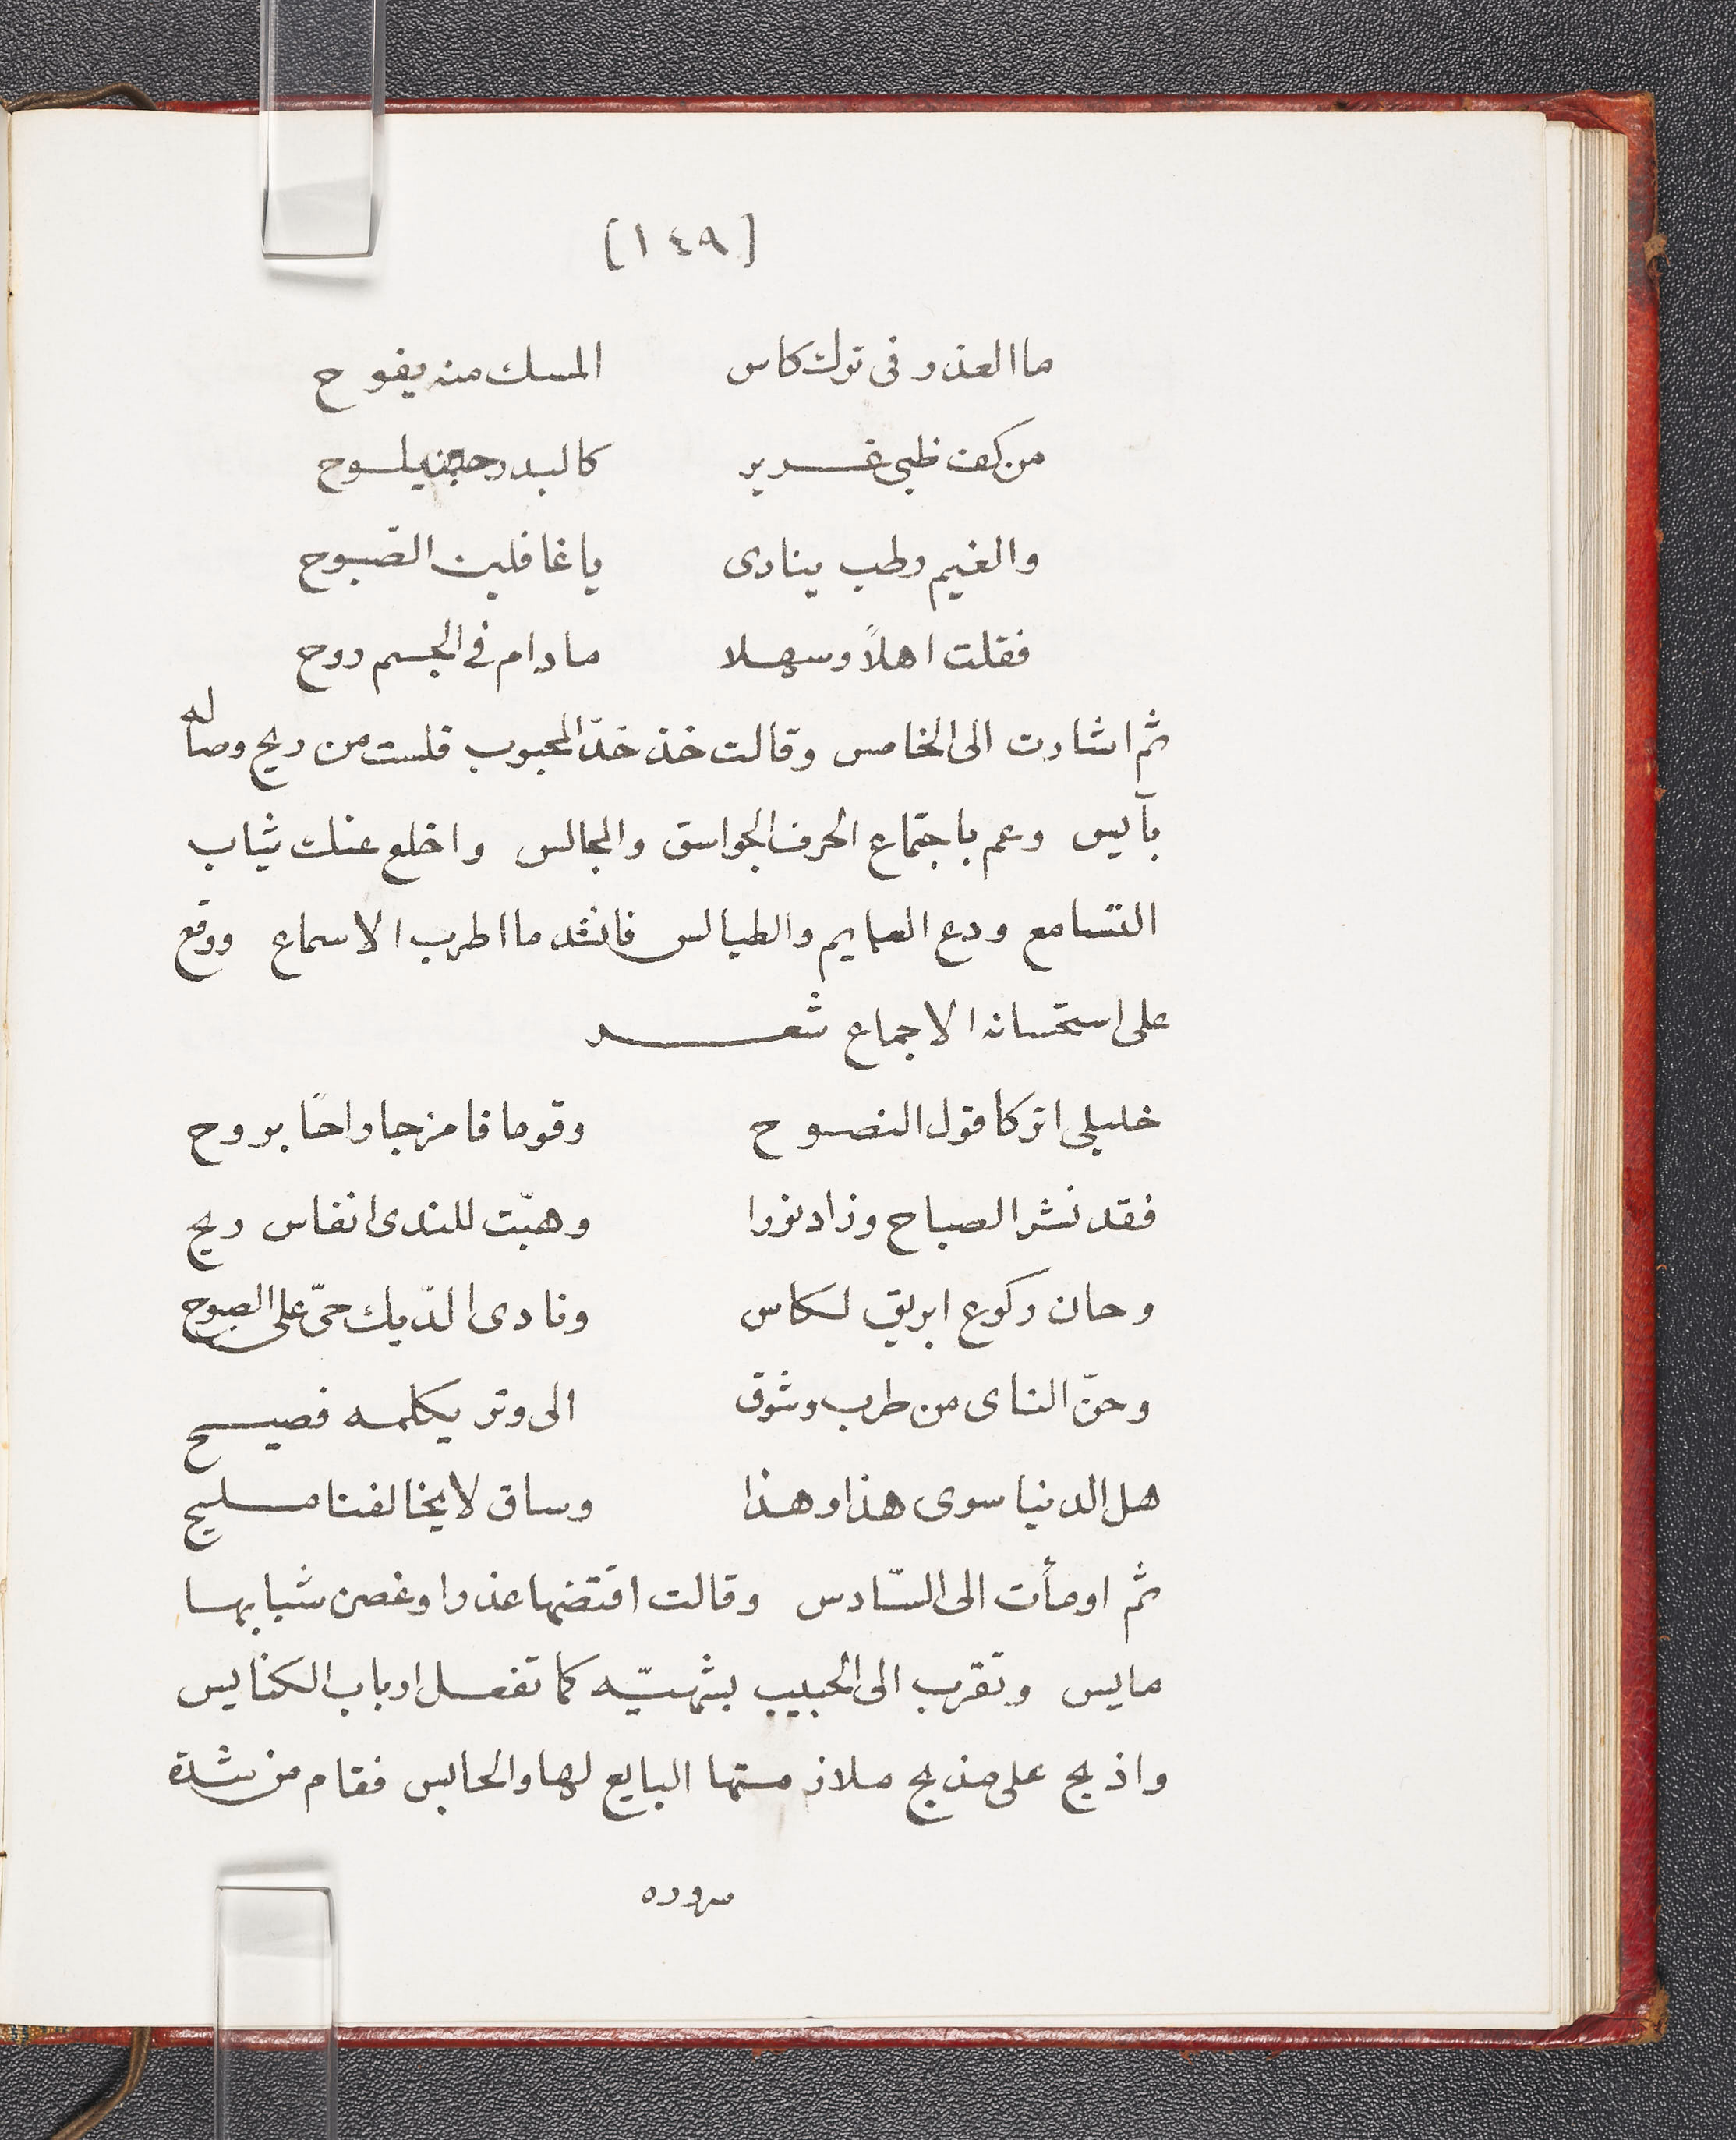 [١٤٩]
ما العذر فى ترك كاس المسك منه يفوح
من كف ظبى غرير كالبدر حين يلوح
والغيم رطب ينادى يا غافلين الصّبوح
فقلت اهلاً وسهلا ما دام فى الجسم روح
ثم اشارت الى الخامس وقالت خذ خدّ المحبوب فلست من ريح وصاله
بآيس وعم باجتماع الحرف الجواسق والمجالس واخلع عنك ثياب
التسامع ودع العمايم والطيالس فانشد ما اطرب الاسماع ووقع
على استحسانه الاجماع شعر
خليلى اتركا قول النصوح وقوما فامزجا راحًا بروح
فقد نشر الصباح وزاد نورا وهبّت للندى انفاس ريح
وحان ركوع ابريق لكاس ونادى الدّيك حىّ على الصبوح
وحنّ الناى من طرب وشوق الى وتر يكلمه فصيح
هل الدنيا سوى هذا وهذا وساق لا يخالفنا مليح
ثم اومأت الى السّادس وقالت اقتضها عذرا وغصن شبابها
مايس وتقرب الى الحبيب بشهيّه كما تفعل ارباب الكنايس
واذبح على مذبح ملاذ البايع لها والحابس فقام من شدة
سروره